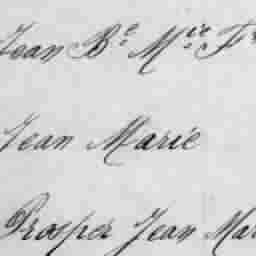 Jean Bte Mie Fs
Jean Marie
Prosper Jean Mar